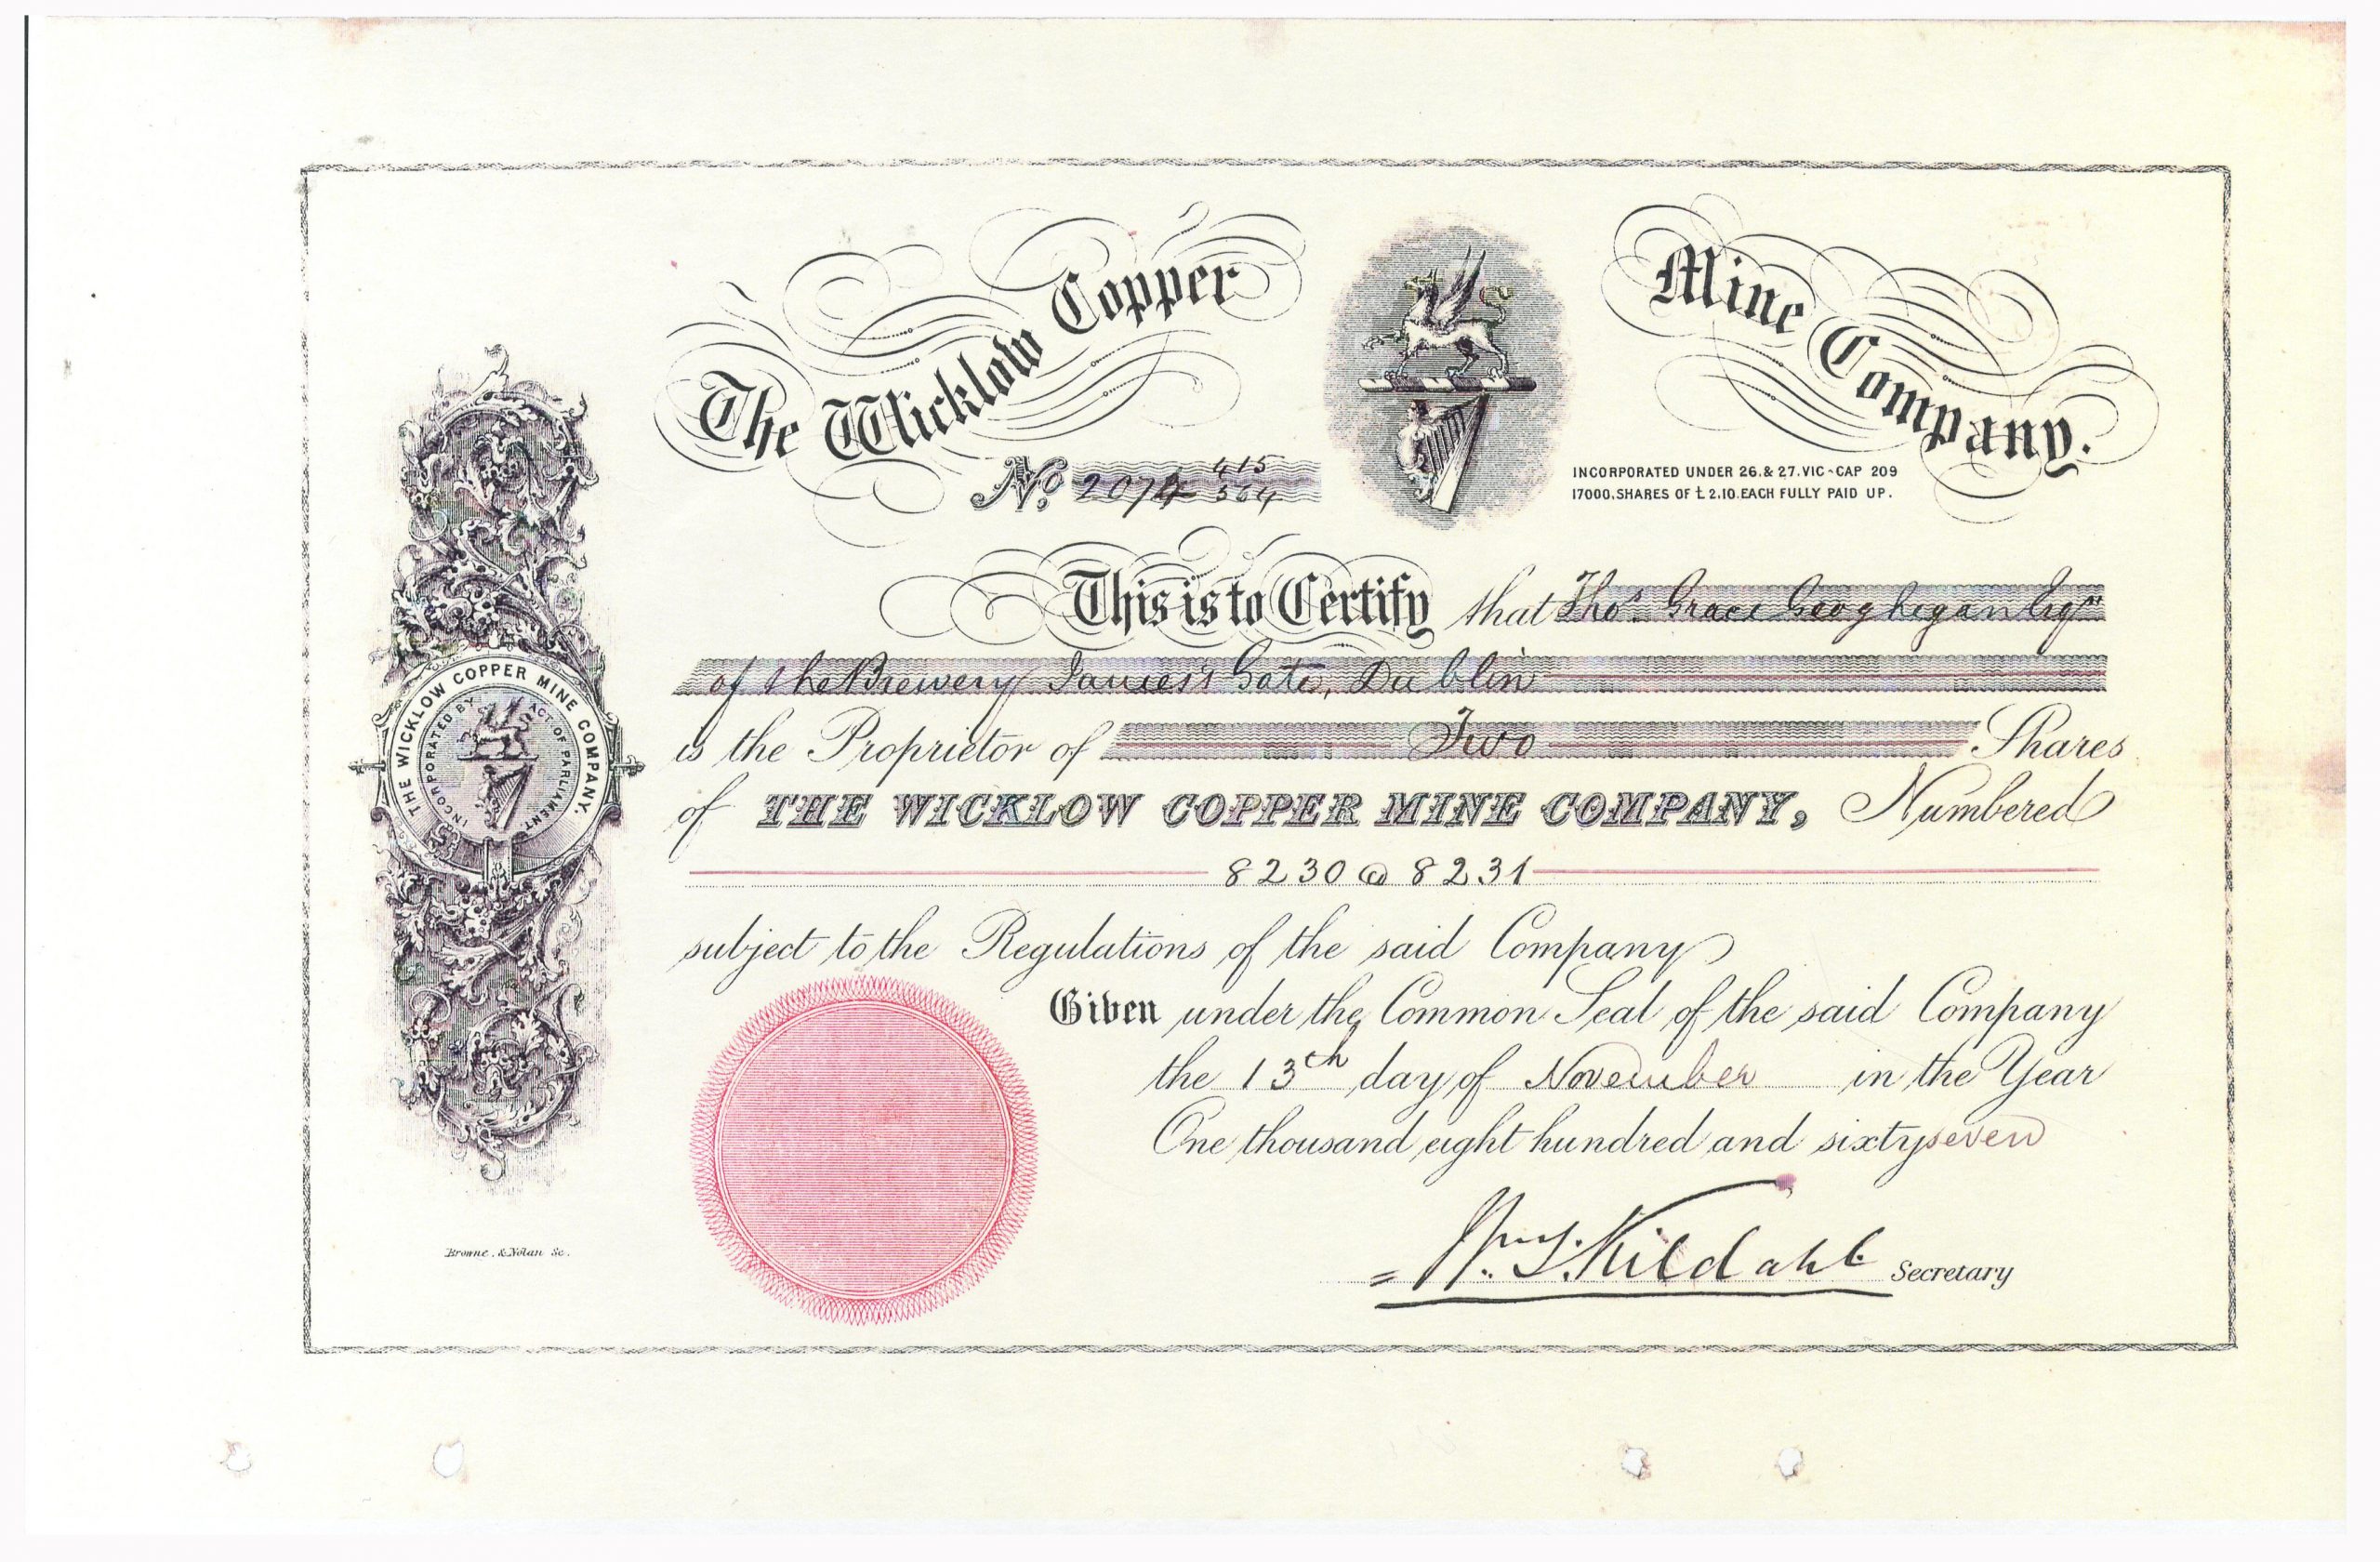 The Wicklow Copper Mine Company.
No. 2074 415/564
INCORPORATED UNDER 26.& 27.VIC-CAP 209
17000,SHARES OF £2.10.EACH FULLY PAID UP.
This is to Certify that Thos. Grace Geoghegan Esqre
of the Brewery James's Gate, Dublin
is the Proprietor of Two Shares
of THE WICKLOW COPPER MINE COMPANY, Numbered
8230 @ 8231
subject to the Regulations of the said Company
Given under the Common Seal of the said Company
the 13th day of November in the Year
One thousand eight hundred and sixty seven
Wm. S. Kildahl Secretary
THE WICKLOW COPPER MINE COMPANY.
INCORPORATED BY ACT OF PARLIAMENT
Browne. & Nolan Sc.